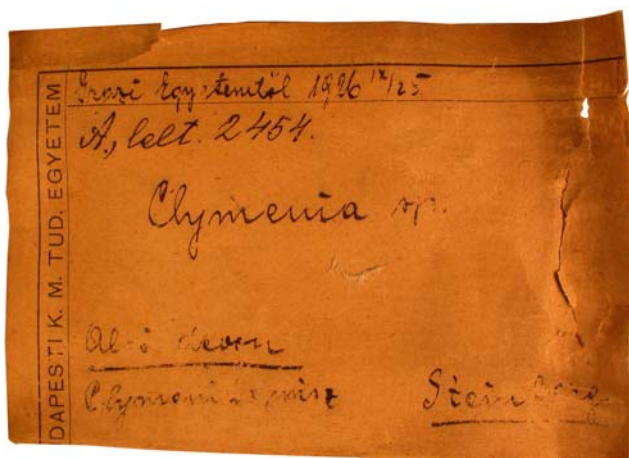 DAPESTI K. M. TUD. EGYETEM
Grazi Egyetemtől 1926 IX/25
A, lelt. 2454.
Clymenia sp.
Alsó devon
Steinberg